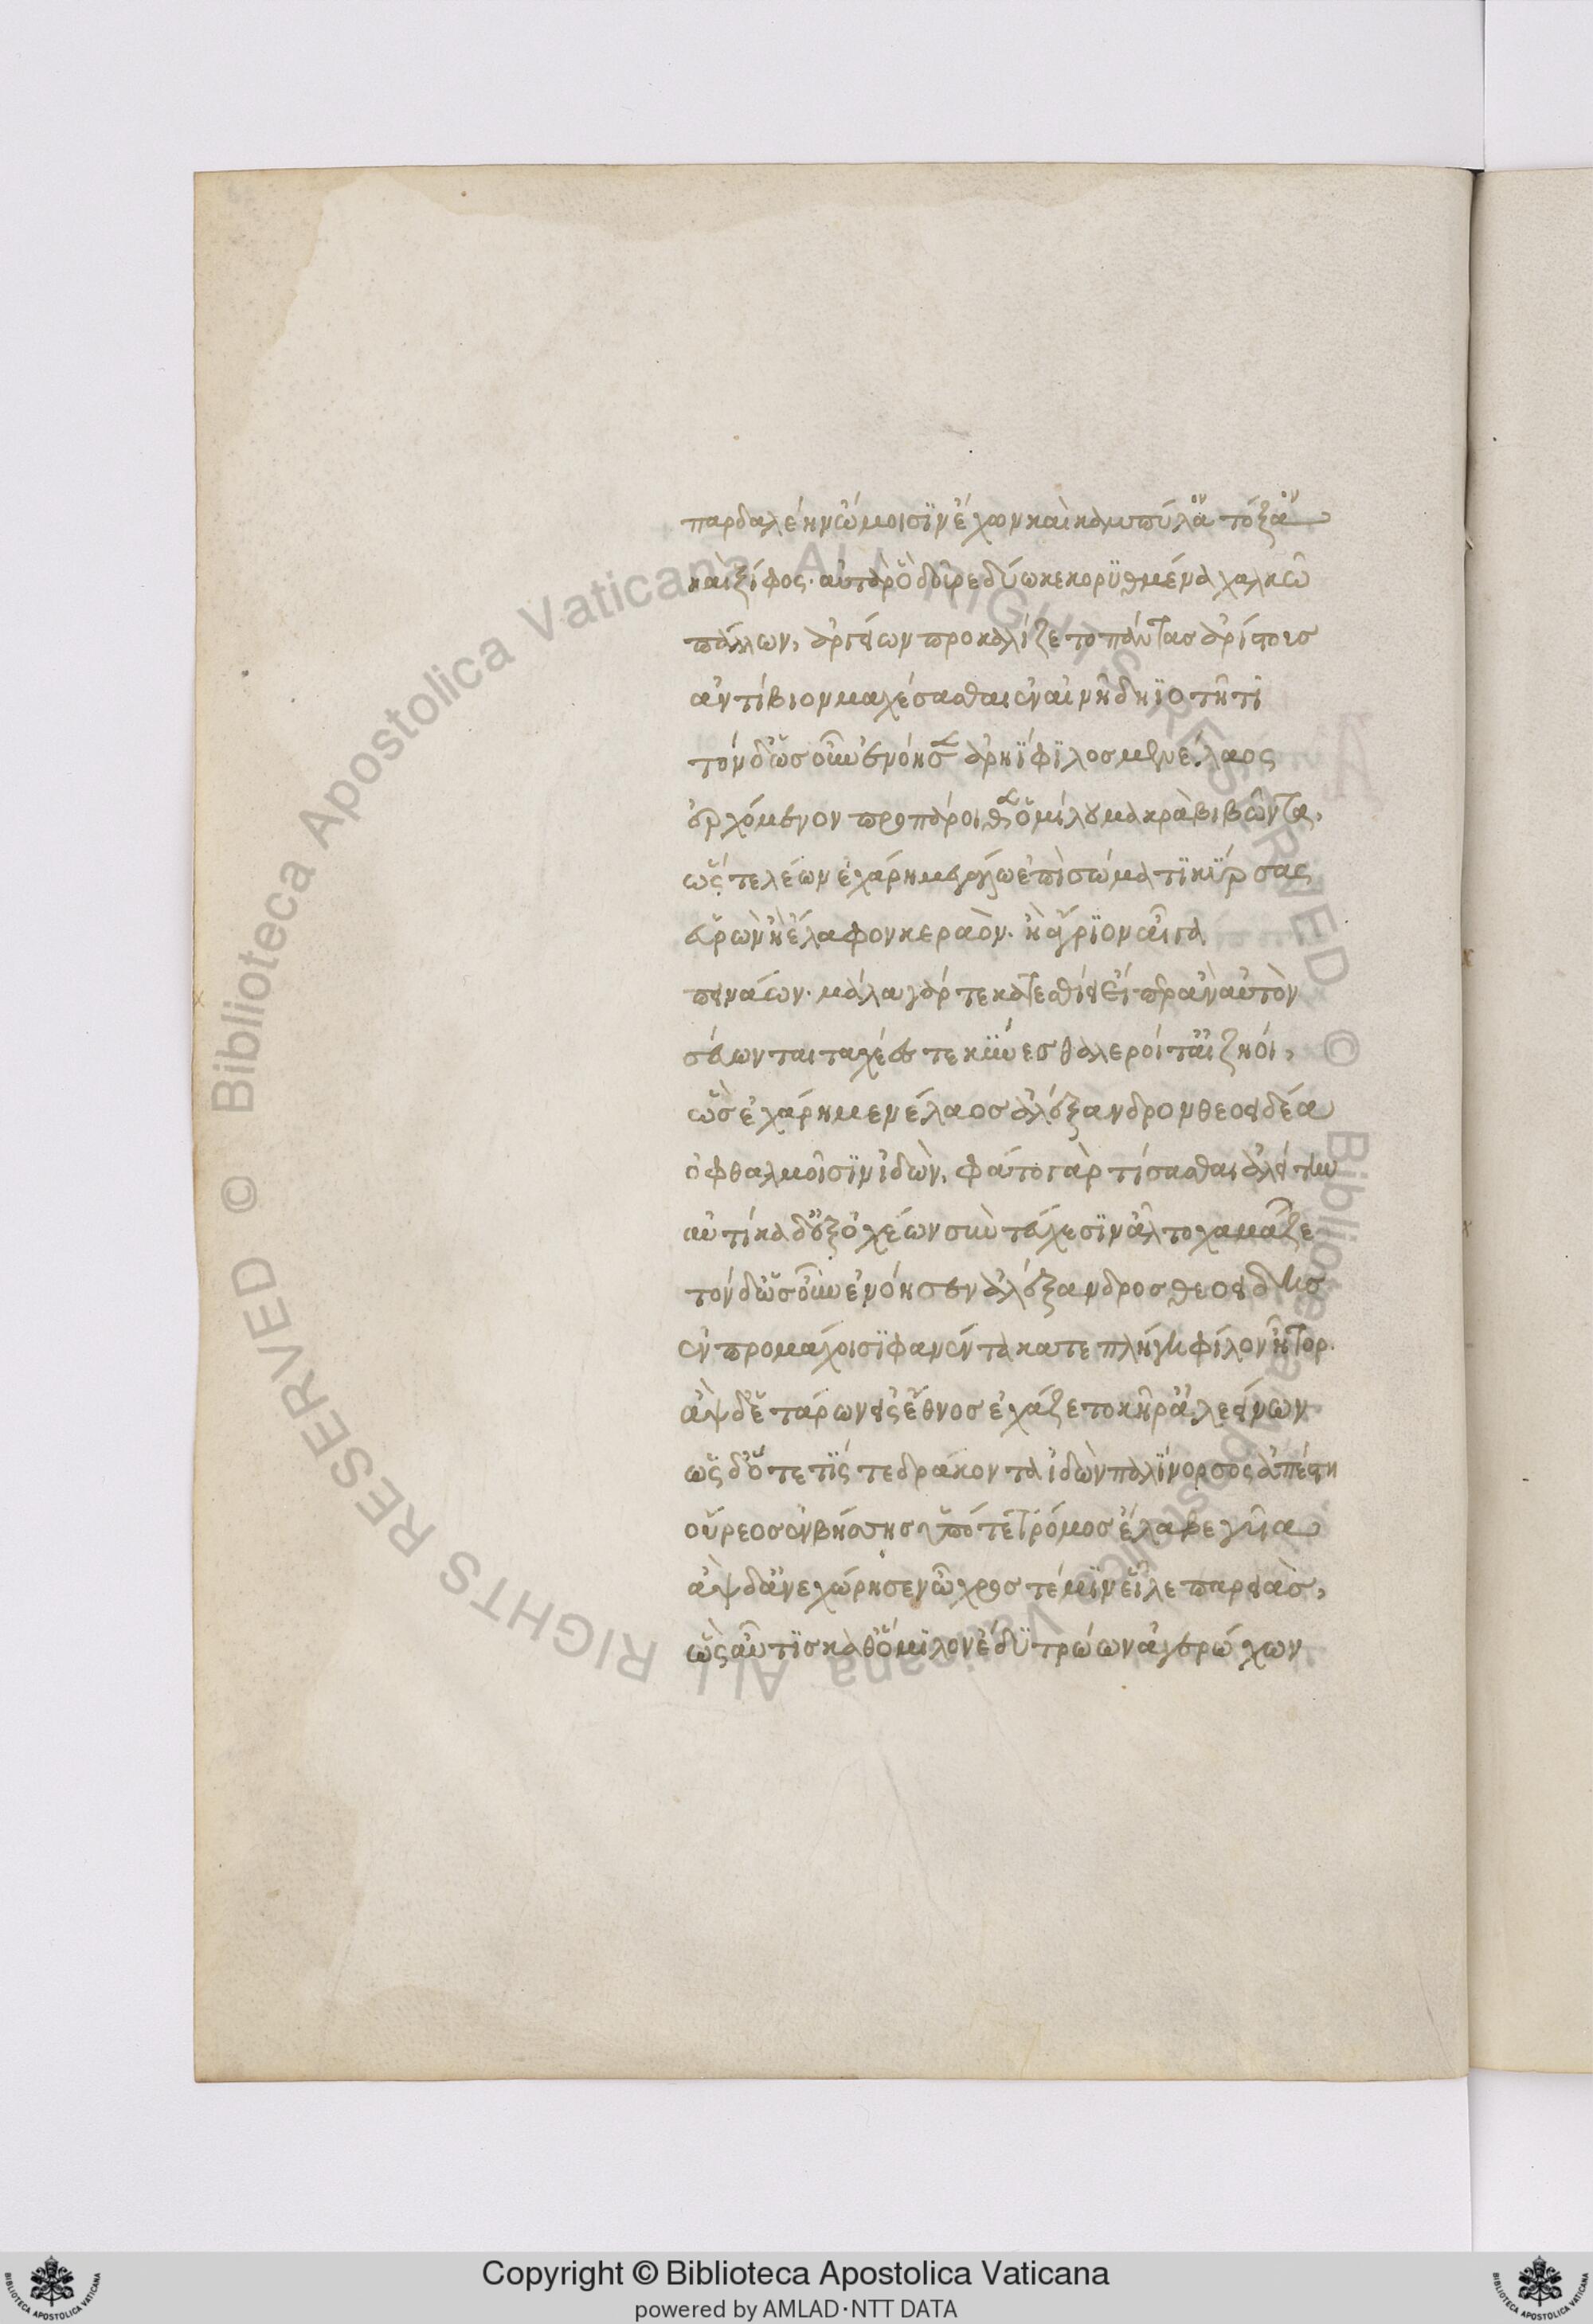 παρδαλέην ὤμοισϊν ἔχων καὶ καμπύλα τόξα
καὶ ξίφος· αὐτὰρ ὃ δοῦρε δύω κεκορϋθμένα χαλκῶ
πάλλων, ἀργείων προκαλίζετο πάντας ἀρίστοισ
ἀντίβιον μαχέσασθαι ἐν αἰνῆ δηϊοτῆτι
τὸν δ' ὡσ οὖν ἐνόησεν ἀρηΐφϊλοσ μενέλαος
ἐρχόμενον προπάροιθεν ὁμίλου μακρὰ βιβῶντα,
ὥς τε λέων ἐχάρη μεγάλω ἐπὶ σώματϊ κϋρσας
εὑρὼν ἢ ἔλαφον κεραὸν· ἢ ἄγρϊον αἶγα
πεινάων· μάλα γάρ τε κατεσθίει εἴπερ ἂν αὐτὸν
σεύωνται ταχέες τε κύνεσ θαλεροί τ' αἰζηοί,
ὣσ ἐχάρη μενέλαοσ ἀλέξανδρον θεοειδέα
ὀφθαλμοῖσϊν ἰδὼν, φάτο γὰρ τίσασθαι ἀλείτην
αὐτίκα δ' ἐξ ὀχέων σὺν τεύχεσϊν ἆλτο χαμᾶζε
τὸν δ' ὡσ οὖν ἐνόησεν ἀλέξανδροσ θεοειδὴσ
ἐν προμάχοισϊ φανέντα κατεπλήγη φίλον ἦτορ.
ἂψ δ' ἑτάρων εἰς ἔθνοσ ἐχάζετο κῆρ' ἀλεείνων
ὡς δ' ὅτε τίς τε δράκοντα ἰδὼν παλίνορσος ἀπέστη
οὔρεοσ ἐν βήσσησ ὑπό τε τρόμοσ ἔλαβε γυῖα
ἂψ δ' ἀνεχώρησεν ὦχροσ τέ μϊν εἷλε παρειὰσ,
ὣς αὖτϊσ καθ' ὅμϊλον ἔδϋ τρώων ἀγερώχων
Copyright © Biblioteca Apostolica Vaticana
powered by AMLAD·NTT DATA